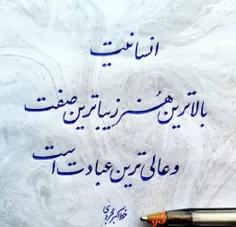 انسانیت
بالاترین هنر زیباترین صفت
و عالی ترین عبادت است